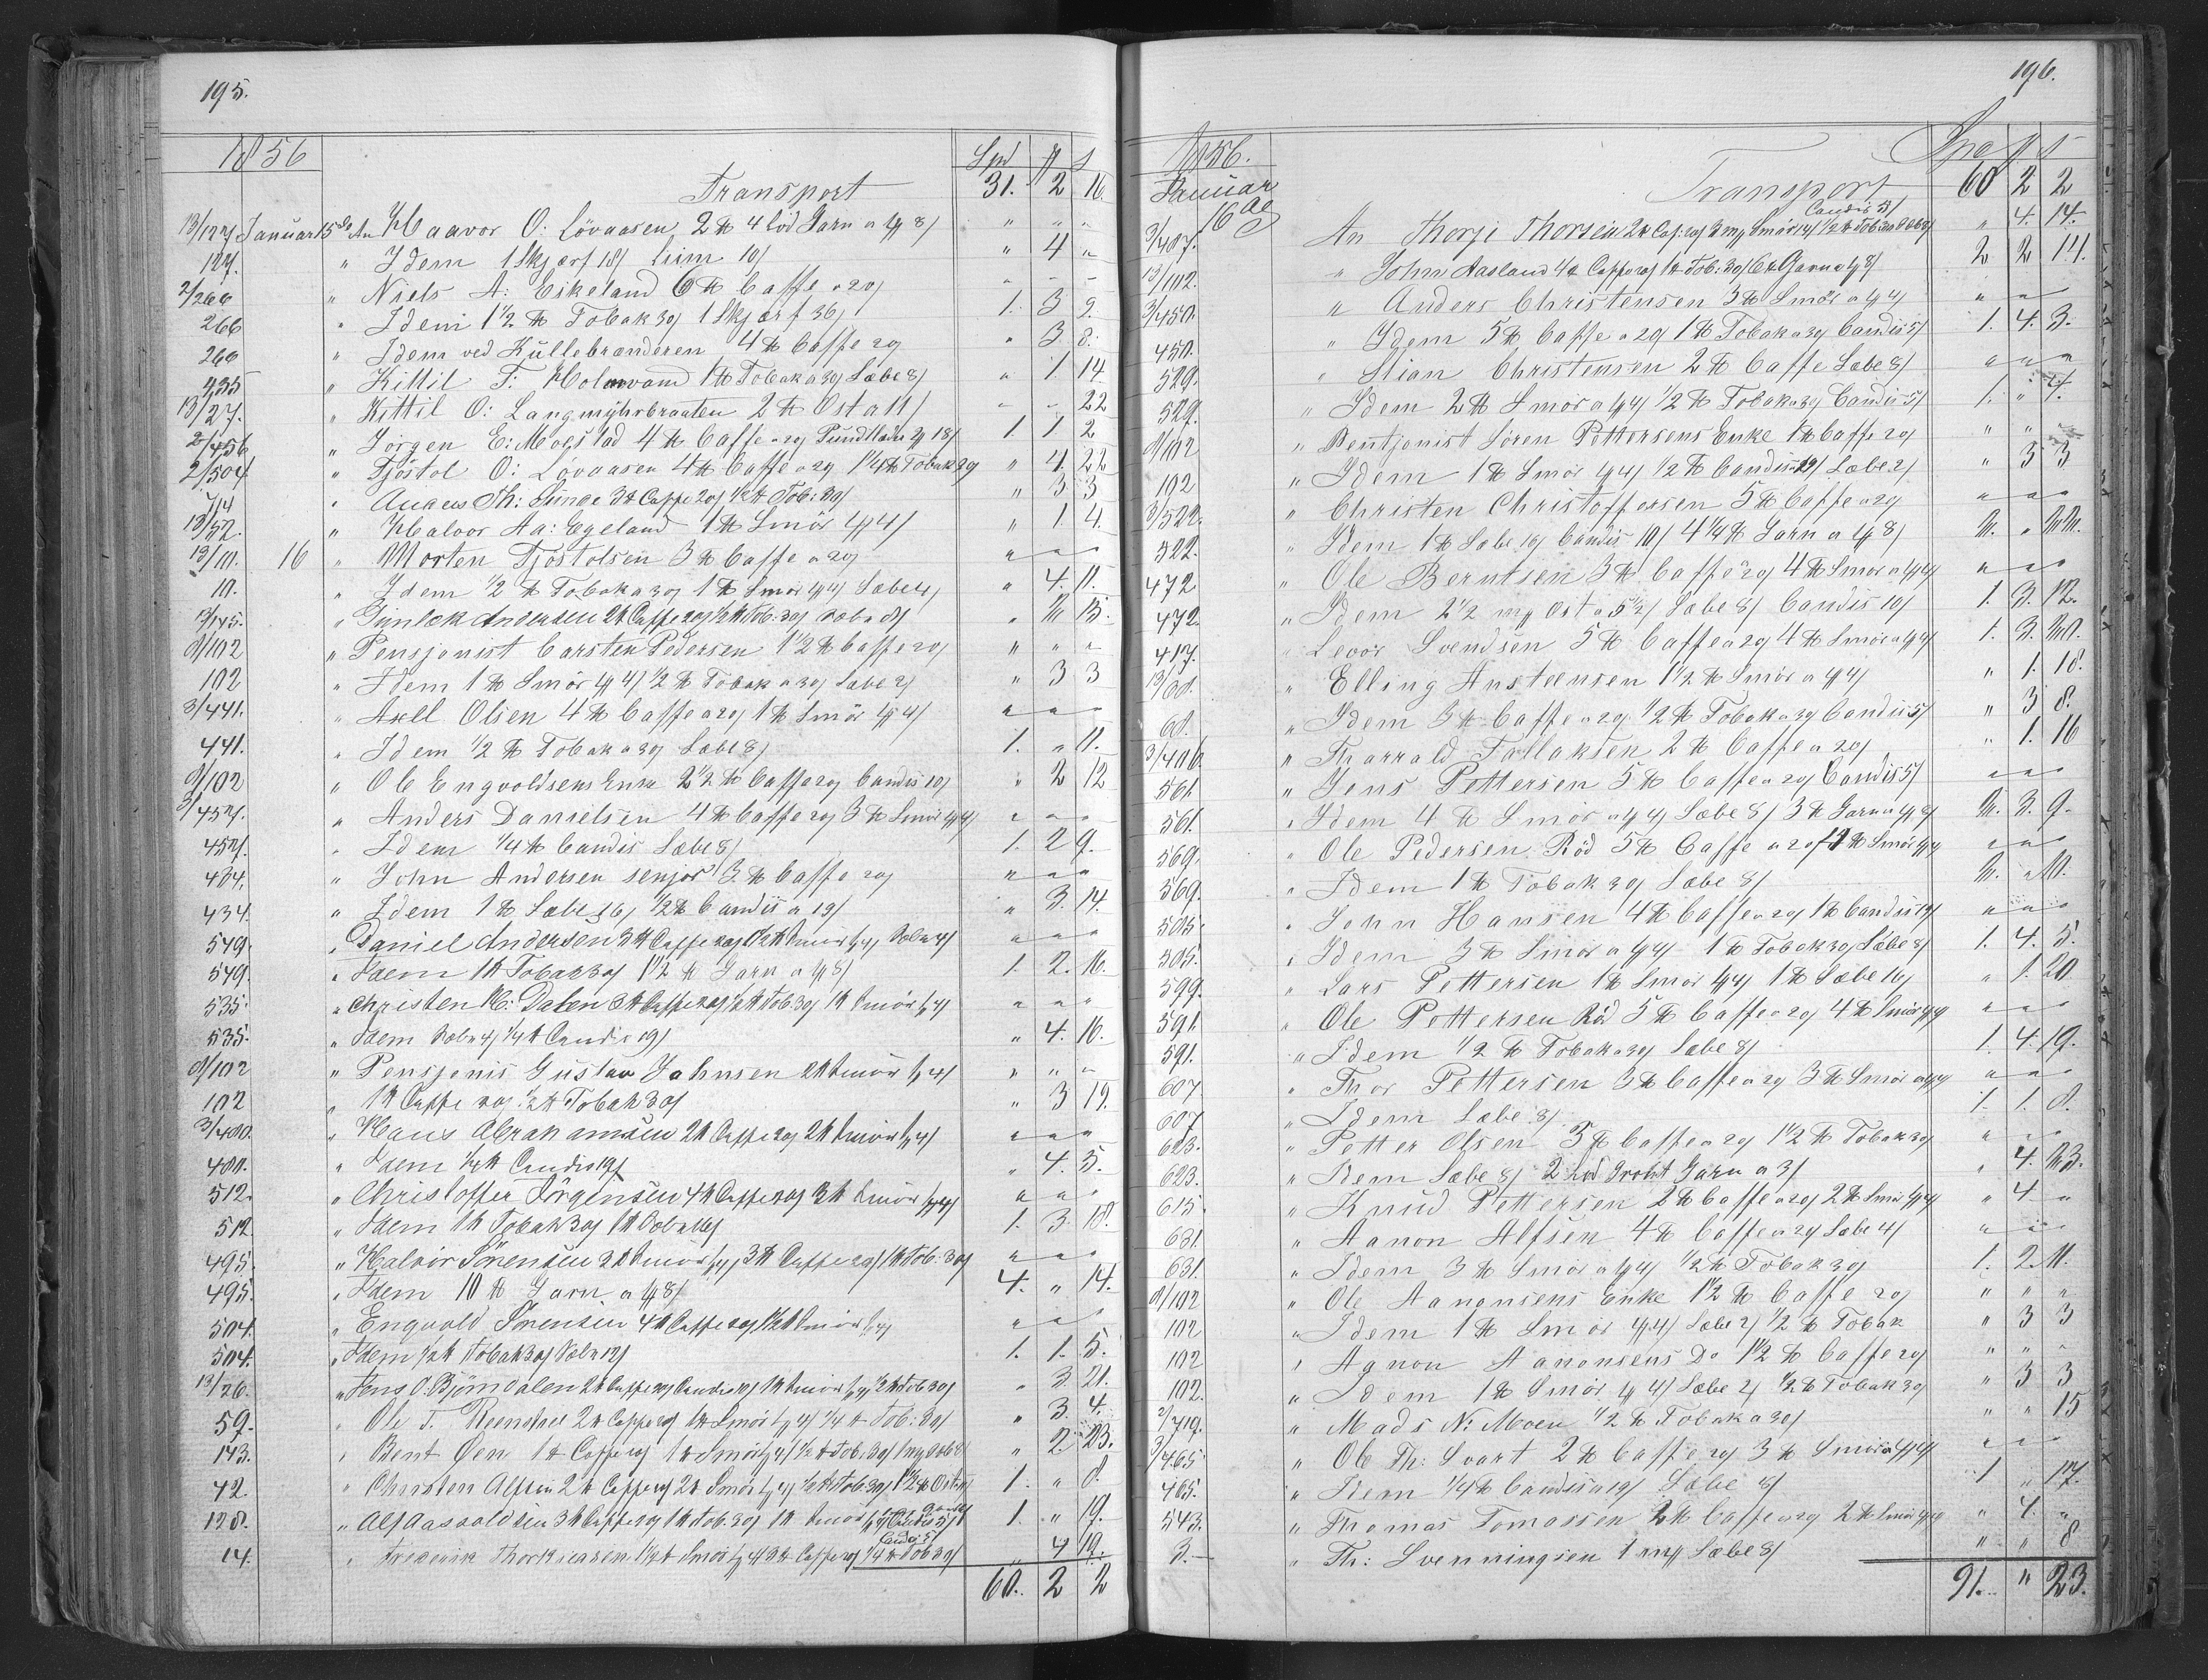 195.
1856 Spd # s
Transport 31. 2 16
13/127 Januar 15de An Haavor O: Lövaasen 2 ℔ 4 Lod Garn a 4/8/ " " "
127. " Idem 1 Skjærf 18/ Liim 10/ " 4 "
2/266 " Niels A: Eikeland 6 ℔ Caffe a 29 " " "
266 " Idem 1½ ℔ Tobak 39 1 Skjærf 36/ 1. 3 9.
266 " Idem ved Kullebrænderen 4 ℔ Caffe 29 " 3 8.
235 " Kittil T: Holmvand 1 ℔ Tobak a 39 Sæbe 8/ " 1 14
13/27. " Kittil O: Langmyhrbraaten 2 ℔ Ost a 11/ " " 22
2/456 " Jörgen E: Moestad 4 ℔ Caffe a 29 18/ 1. 1 2
2/504 " Tjöstol O: Lövaasen 4 ℔ Caffe a 29 1¼ ℔ Tobak 39 " 4. 22
7/4 " Anders Th: Lunde 3 ℔ Caffe 29 ½ ℔ Tob: 39 " 3 3
13/52. " Halvor Aa: Egeland 1 ℔ Smör 4/4/ " 1 4.
13/10. 16 " Morten Tjöstolsen 3 ℔ Caffe a 29 " " "
10. " Idem ½ ℔ Tobak a 39 1 ℔ Smör 4/4/ Sæbe 4/ " 4. 11.
13/145. " Gunlek Andersen 2 ℔ Caffe 29 ½ ℔ Tob: 39 Sæbe 8/ " 2 15.
9/102 " Pensjonist Carsten Pedersen 1½ ℔ Caffe 29 " " "
102 " Idem 1 ℔ Smör 4/4/ ½ ℔ Tobak a 39 Sæbe 2/ " 3 3
3/441. " Axell Olsen 4 ℔ Caffe a 29 1 ℔ Smör 4/4/ " " "
441. " Idem ½ ℔ Tobak a 39 Sæbe 8/ 1. " 11.
9/102 " Ole Engvoldsens Enke 2½ ℔ Caffe 29 Candis 10/ " 2 12
3/457. " Anders Danielsen 4 ℔ Caffe 29 3 ℔ Smör 4/4/ " " "
457. " Idem ¼ ℔ Candis Sæbe 8/ 1. 2 9.
434. " John Andersen senjor 3 ℔ Caffe 29 " " "
434. " Idem 1 ℔ Sæbe 16/ ½ ℔ Candis a 19/ " 3. 14.
549. " Daniel Andersen 3 ℔ Caffe 29 1½ ℔ Smör 4/4/ Sæbe 4/ " " "
549. " Idem 1 ℔ Tobak 39 1½ ℔ Garn a 4/8/ 1. 2. 16.
535. " Christen H: Dalen 3 ℔ Caffe 29 ½ ℔ Tob 39 1 ℔ Smör 4/4/ " " "
535. " Idem Sæbe 4/ ¼ ℔ Candis 19/ " 4. 16.
9/102 " Pensjonis Gustav Johnsen 2 ℔ Smör 4/4/ " " "
102 " 1 ℔ Caffe 29 ½ ℔ Tobak 39 " 3 19.
3/480. " Hans Abrahamsen 2 ℔ Caffe 29 2 ℔ Smör 4/4/ " " "
480. " Idem ¼ ℔ Candis 19/ " 4. 5.
512. " Christoffer Jörgensen 4 ℔ Caffe 29 3 ℔ Smör 4/4/ " " "
512. " Idem 1 ℔ Tobak 39 1 ℔ Sæbe 16/ 1. 3. 18.
495. " Halvor Sörensen 3 ℔ Smör 4/4/ 3 ℔ Caffe 29 1 ℔ Tob: 39 " " "
495. " Idem 10 ℔ Garn a 4/8/ 4. " 14.
504. " Engvold Sörensen 4 ℔ Caffe 29 1½ ℔ Smör 4/4/ " " "
504. " Idem ½ ℔ Tobak 39 Sæbe 12/ 1. 1. 5.
13/26. " Jens O. Björndalen 2 ℔ Caffe 29 Candis 10/ 1 ℔ Smör 4/4/ ½ ℔ Tob 39 " 3. 21.
59. " Ole T. 2 ℔ Caffe 29 1 ℔ Smör 4/4/ ¼ ℔ Tob: 39 " 3. 4.
143. " Bent Øen 1 ℔ Caffe 29 1 ℔ Smör 4/4/ ½ ℔ Tob: 39 1 " 2. 23.
42. " Christen Alfsen 2 ℔ Caffe 29 2 ℔ Smör 4/4/ ½ ℔ Tob: 39 1½ ℔ Ost 1. " 8.
128. " Alf Aasvoldsen 3 ℔ Caffe 29 1 ℔ Tob. 39 1 ℔ Smör 4/4/ Candis 5/ 1. " 19.
Candis 5/
14. " Frederik Thorkjeasen 1½ ℔ Smör 4/4/ 3 ℔ Caffe 29 ¼ ℔ Tob 39 " 4 19.
60. 2 2
196.
1856. Spe # s
Transport 60 2 2
Januar 16de
Candis 5/
3/407. An Thorje Thorsen 2 ℔ Caf: 29 Smör 4/4/ 1½ ℔ Tob: 39 " 4. 14.
13/102. " John Aasland 4 ℔ Caffe 29 1 ℔ Tob: 39 6 ℔ Garn 4/8/ 2 2 14.
3/450. " Anders Christensen 3 ℔ Smör a 4/4/ " " "
450. " Idem 5 ℔ Caffe a 29 1 ℔ Tobak a 39 Candis 5/ 1. 4. 3.
529. " Stian Christensen 2 ℔ Caffe Sæbe 8/ " " "
529. " Idem 2 ℔ Smör a 4/4/ ½ ℔ Tobak a 39 Candis 5/ 1. " 4.
9/102 " Pentjonist Sören Pettersens Enke 1 ℔ Caffe 29 " " "
102 " Idem 1 ℔ Smör 4/4/ ½ ℔ Candis 19/ Sæbe 2/ " 3 3
3/522. " Christen Christoffersen 5 ℔ Caffe a 29 " " "
522. " Idem 1 ℔ Sæbe 16/ Candis 10/ 4¼ ℔ Garn a 4/8/ 2. " 22.
472 " Ole Berntsen 3 ℔ Caffe a 29 4 ℔ Smör a 4/4/ " " "
472. " Idem 2½ mk Ost a 5½/ Sæbe 8/ Candis 10/ 1. 3. 12.
417. " Levor Svendsen 5 ℔ Caffe a 29 4 ℔ Smör a 4/4/ 1. 3. 20.
13/60. " Elling Ansteensen 1½ ℔ Smör a 4/4/ " 1. 18.
60. " Idem 3 ℔ Caffe a 29 ½ ℔ Tobak a 39 Candis 5/ " 3 8.
3/406. " Tharrald Tallaksen 2 ℔ Caffe a 29 " 1. 16
561. " Jens Pettersen 5 ℔ Caffe a 29 Candis 5/ " " "
561. " Idem 4 ℔ Smör a 4/4/ Sæbe 8/ 3 ℔ Garn a 4/8/ 2. 3. 9.
569. " Ole Pedersen Röd 5 ℔ Caffe a 29 ℔ Smör 4/4/ " " "
569. " Idem 1 ℔ Tobak 39 Sæbe 8/ 2. " 10.
505. " John Hansen 4 ℔ Caffe a 29 1 ℔ Candis 19/ " " "
505. " Idem 3 ℔ Smör a 4/4/ 1 ℔ Tobak 39 Sæbe 8/ 1. 4. 5.
599. " Lars Pettersen 1 ℔ Smör 4/4/ 1 ℔ Sæbe 16/ " 1. 20
591. " Ole Pettersen Röd 5 ℔ Caffe a 29 4 ℔ Smör 4/4/ " " "
591. " Idem ½ ℔ Tobak a 39 Sæbe 8/ 1. 4. 19.
607 " Thor Pettersen 3 ℔ Caffe a 29 3 ℔ Smör a 4/4/ " " "
607 " Idem Sæbe 8/ 1. 1. 8.
623. " Petter Olsen 5 ℔ Caffe a 29 1½ ℔ Tobak 39 " " "
623. " Idem Sæbe 8/ 2 Lod Groht Garn a 3/ " 4. 23.
615. " Knud Pettersen 2 ℔ Caffe a 29 2 ℔ Smör 4/4/ " 4. "
631. " Aanon Alfsen 4 ℔ Caffe a 29 Sæbe 4/ " " "
631. " Idem 3 ℔ Smör a 4/4/ ½ ℔ Tobak 39 1. 2. 11.
9/102 " Ole Aanonsens Enke 1½ ℔ Caffe 29 " " "
102 " Idem 1 ℔ Smör 4/4/ Sæbe 2/ ½ ℔ Tobak " 3 3
102 " Aanon Aanonsens Do 1½ ℔ Caffe 29 " " "
102. " Idem 1 ℔ Smör 4/4/ Sæbe 2/ ½ ℔ Tobak 39 " 3 3
2/719. " Mads N: Moen ½ ℔ Tobak a 39/ " " 15
3/465 " Ole Th: Svart 2 ℔ Caffe 29 3 ℔ Smör a 4/4/ " " "
465. " Idem ¼ ℔ Candis a 19/ Sæbe 8/ 1 " 17.
543. " Thomas Tomassen 2 ℔ Caffe a 29 2 ℔ Smör 4/4/ " 4. "
3. " Th: Svenningsen 1 mk Sæbe 8/ " " 8
91. " 23.